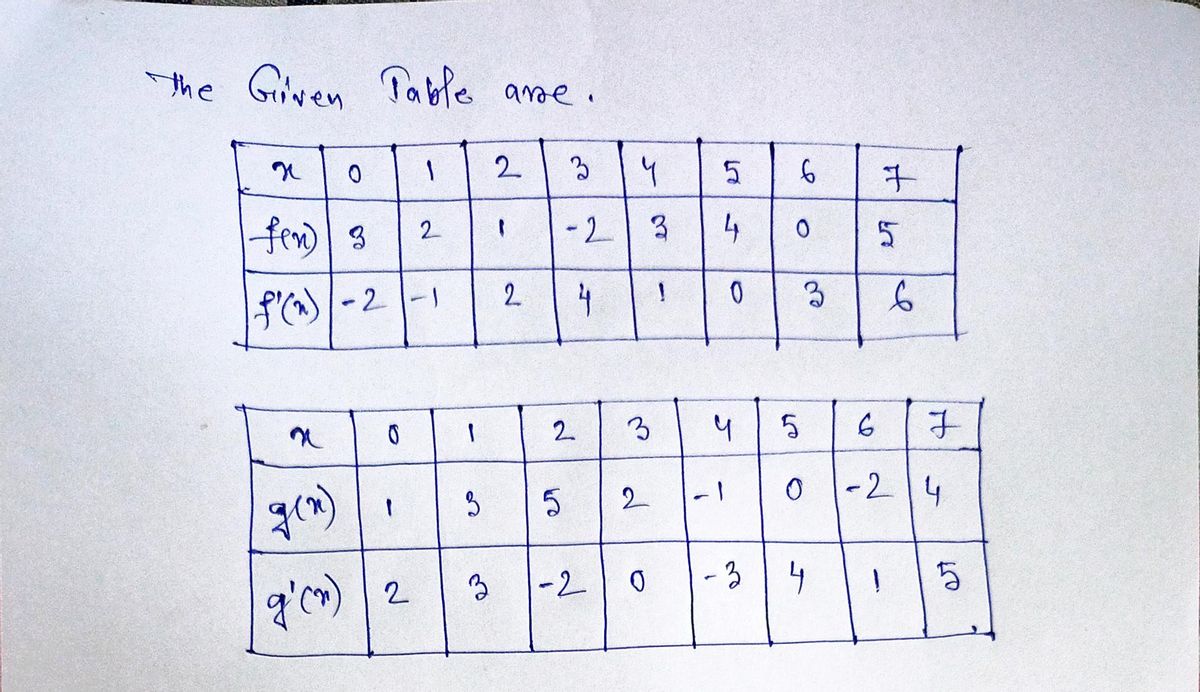 The Given Table are.
x 0 1 2 3 4 5 6 7
f(x) 3 2 1 -2 3 4 0 5
f'(x) -2 -1 2 4 1 0 3 6
x 0 1 2 3 4 5 6 7
g(x) 1 3 5 2 -1 0 -2 4
g'(x) 2 3 -2 0 -3 4 1 5